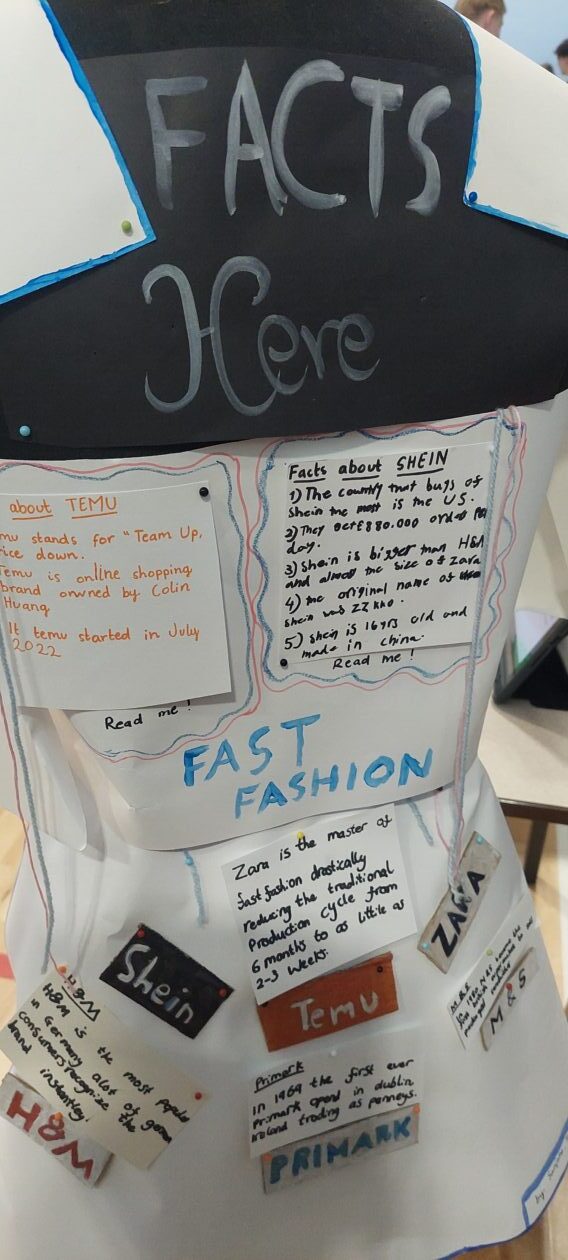 FACTS
Here
about TEMU
mu stands for "Team Up,
rice down.
Temu is online shopping
brand owned by Colin
Huang
It temu started in July
2022
Read me!
Facts about SHEIN
1) The country that buys of
shein the most is the US.
2) They get £880.000 orders per
day.
3) Shein is bigger than H&M
and almost the size of Zara
4) the original name of
shein was ZZKKO.
5) Shein is 16yrs old and
made in China.
Read me!
FAST
FASHION
Zara is the master of
fast fashion drastically
reducing the traditional
Production cycle from
6 months to as little as
2-3 weeks.
ZARA
Shein
Temu
H&M
H&M is the most popular
in Germany alot of german
consumers recognize the
brand instantley!
H&M
Primark
In 1969 the first ever
Primark opend in dublin
Ireland trading as penneys.
PRIMARK
M&S
M & S
by